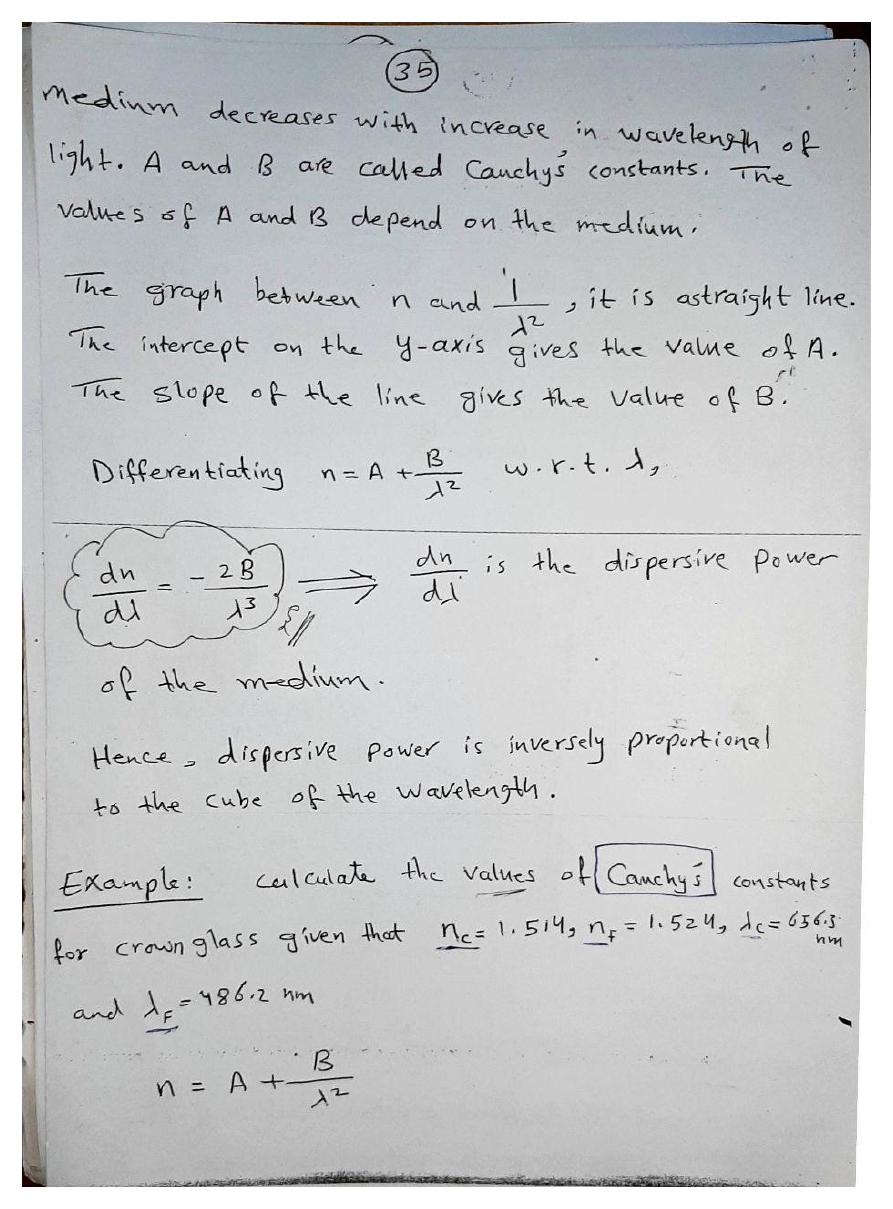 35
medium decreases with increase in wavelength of
light. A and B are called Cauchy's constants. The
values of A and B depend on the medium.
The graph between n and 1/λ², it is astraight line.
The intercept on the y-axis gives the value of A.
The slope of the line gives the value of B.
Differentiating n = A + B/λ² w.r.t. λ,
dn/dλ = - 2B/λ³ ⟹ dn/dλ is the dispersive power
of the medium.
Hence, dispersive power is inversely proportional
to the cube of the wavelength.
Example: calculate the values of Cauchy's constants
for crown glass given that nc = 1.514, nF = 1.524, λc = 656.3 nm
and λF = 486.2 nm
n = A + B/λ²